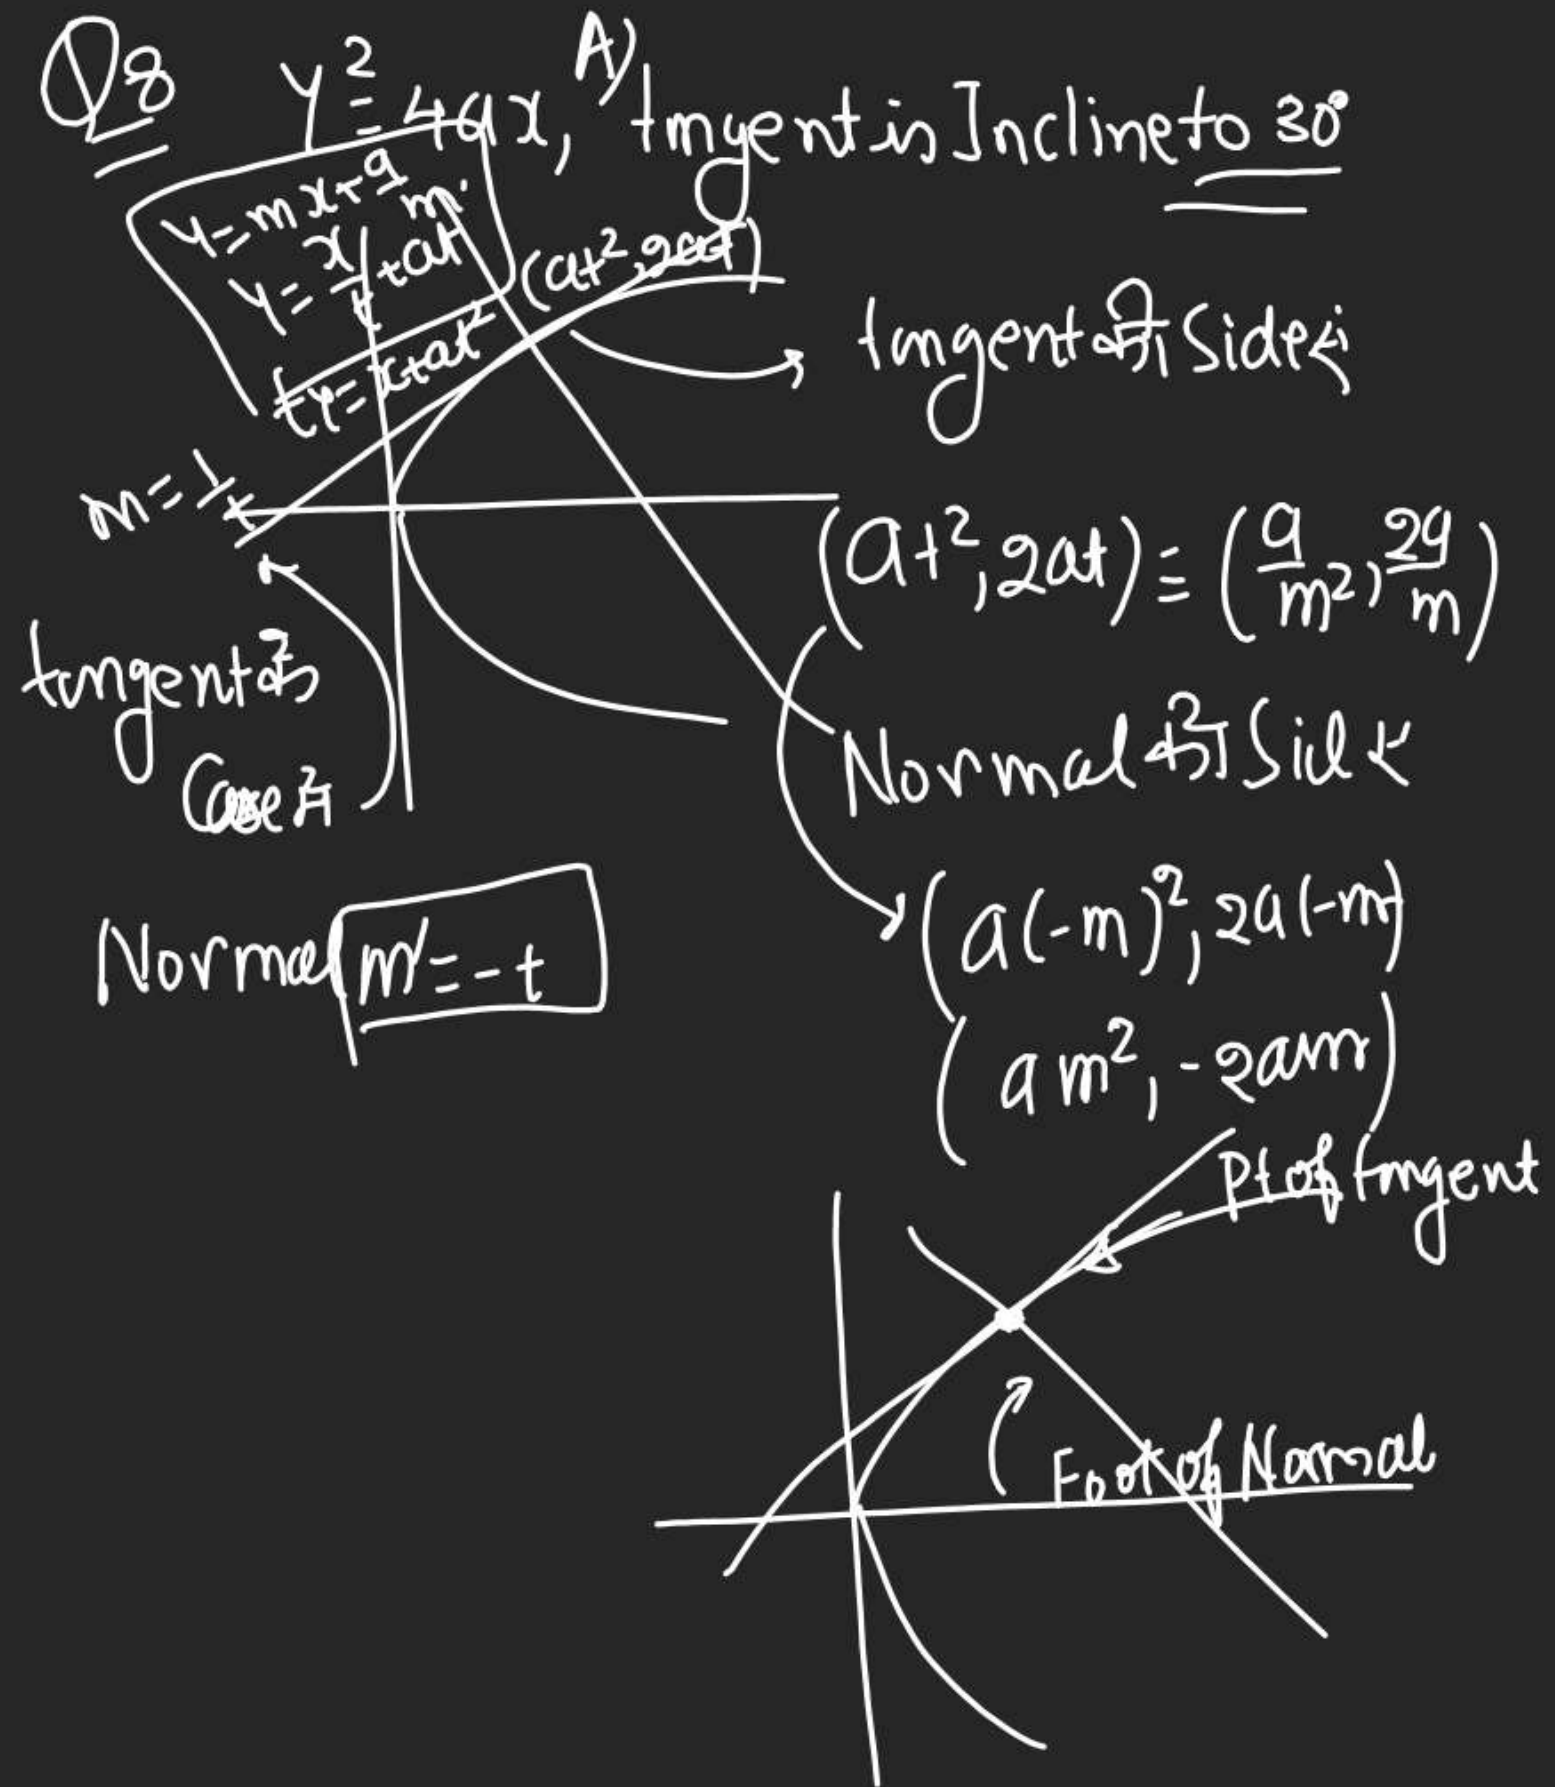 Q8 y² = 4ax, A) tangent is Incline to 30°
y = mx + a/m
y = x/t + at
ty = x + at²
(at², 2at)
tangent की side से
m = 1/t
(at², 2at) ≡ (a/m², 2a/m)
tangent के
Case में
Normal की Side से
Normal m' = -t
(a(-m)², 2a(-m))
(am², -2am)
Pt of tangent
Foot of Normal